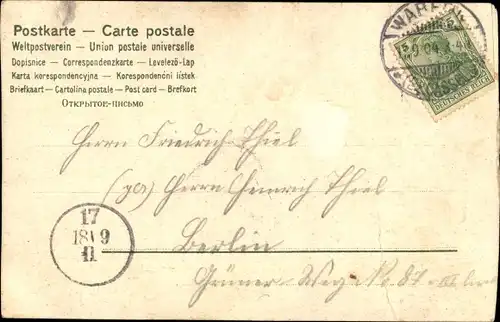 Postkarte — Carte postale
Weltpostverein — Union postale universelle
Dopisnice — Correspondenzkarte — Levelező-Lap
Karta korespondencyjna — Korespondenční lístek
Briefkaart — Cartolina postale — Post card — Brefkort
Открытое-письмо
DEUTSCHES REICH
Herrn Friedrich Thiel
Herrn Heinrich Thiel
Berlin
Grüner Weg No 87 III
17
18 9
11